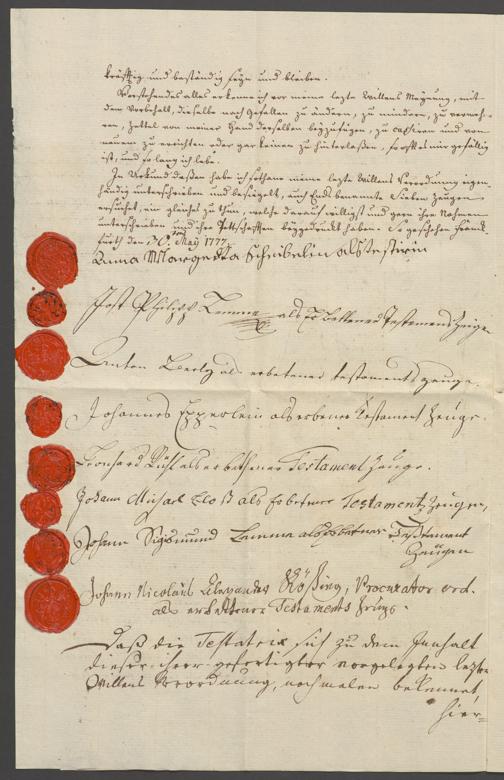 kräfftig und beständig seyn und bleiben.
Vorstehendes alles erkenne ich vor meine lezte Willens Meynung, mit
dem Vorbehalt, dieselbe nach Gefallen zu ändern, zu mindern, zu vermeh-
ren, Zettel von meiner Hand derselben beyzufügen, zu cassiren und von
neuem zu errichten oder gar keinen zu hinterlassen, so offt es mir gefällig
ist, und so lang ich lebe.
In Urkund dessen habe ich sothane meine lezte Willens Verordnung eigen-
händig unterschrieben und besiegelt, auch Ends benannte Sieben Zeugen
ersuchet, ein gleiches zu thun, welche darauf willigst und gern ihre Nahmen
unterschrieben und ihre Pettschafften beygedruckt haben. So geschehen Franck-
furth den 30. May 177
Anna Margreta Scheibelin als testirin
Jost Philipp Lemme als Erbettener Testaments Zeuge
Anton als erbetener testaments zeuge.
Johannes Epperlein als erbener Testament Zeuge.
Leonhard Rühl als erbethener Testament Zeuge.
Johann Michael Cloß als Erbetener Testament Zeuge,
Johann Sigismund Lemme als Erbetener Testament
Zeugen
Johann Nicolaus Alexander Rößing, Procurator ord.
als erbettener Testaments Zeuge.
Daß die Testatrix sich zu dem Innhalt
dieser ihrer gefertigten vorgelegten lezten
Willens Verordnung, nochmalen bekennet,
hier=